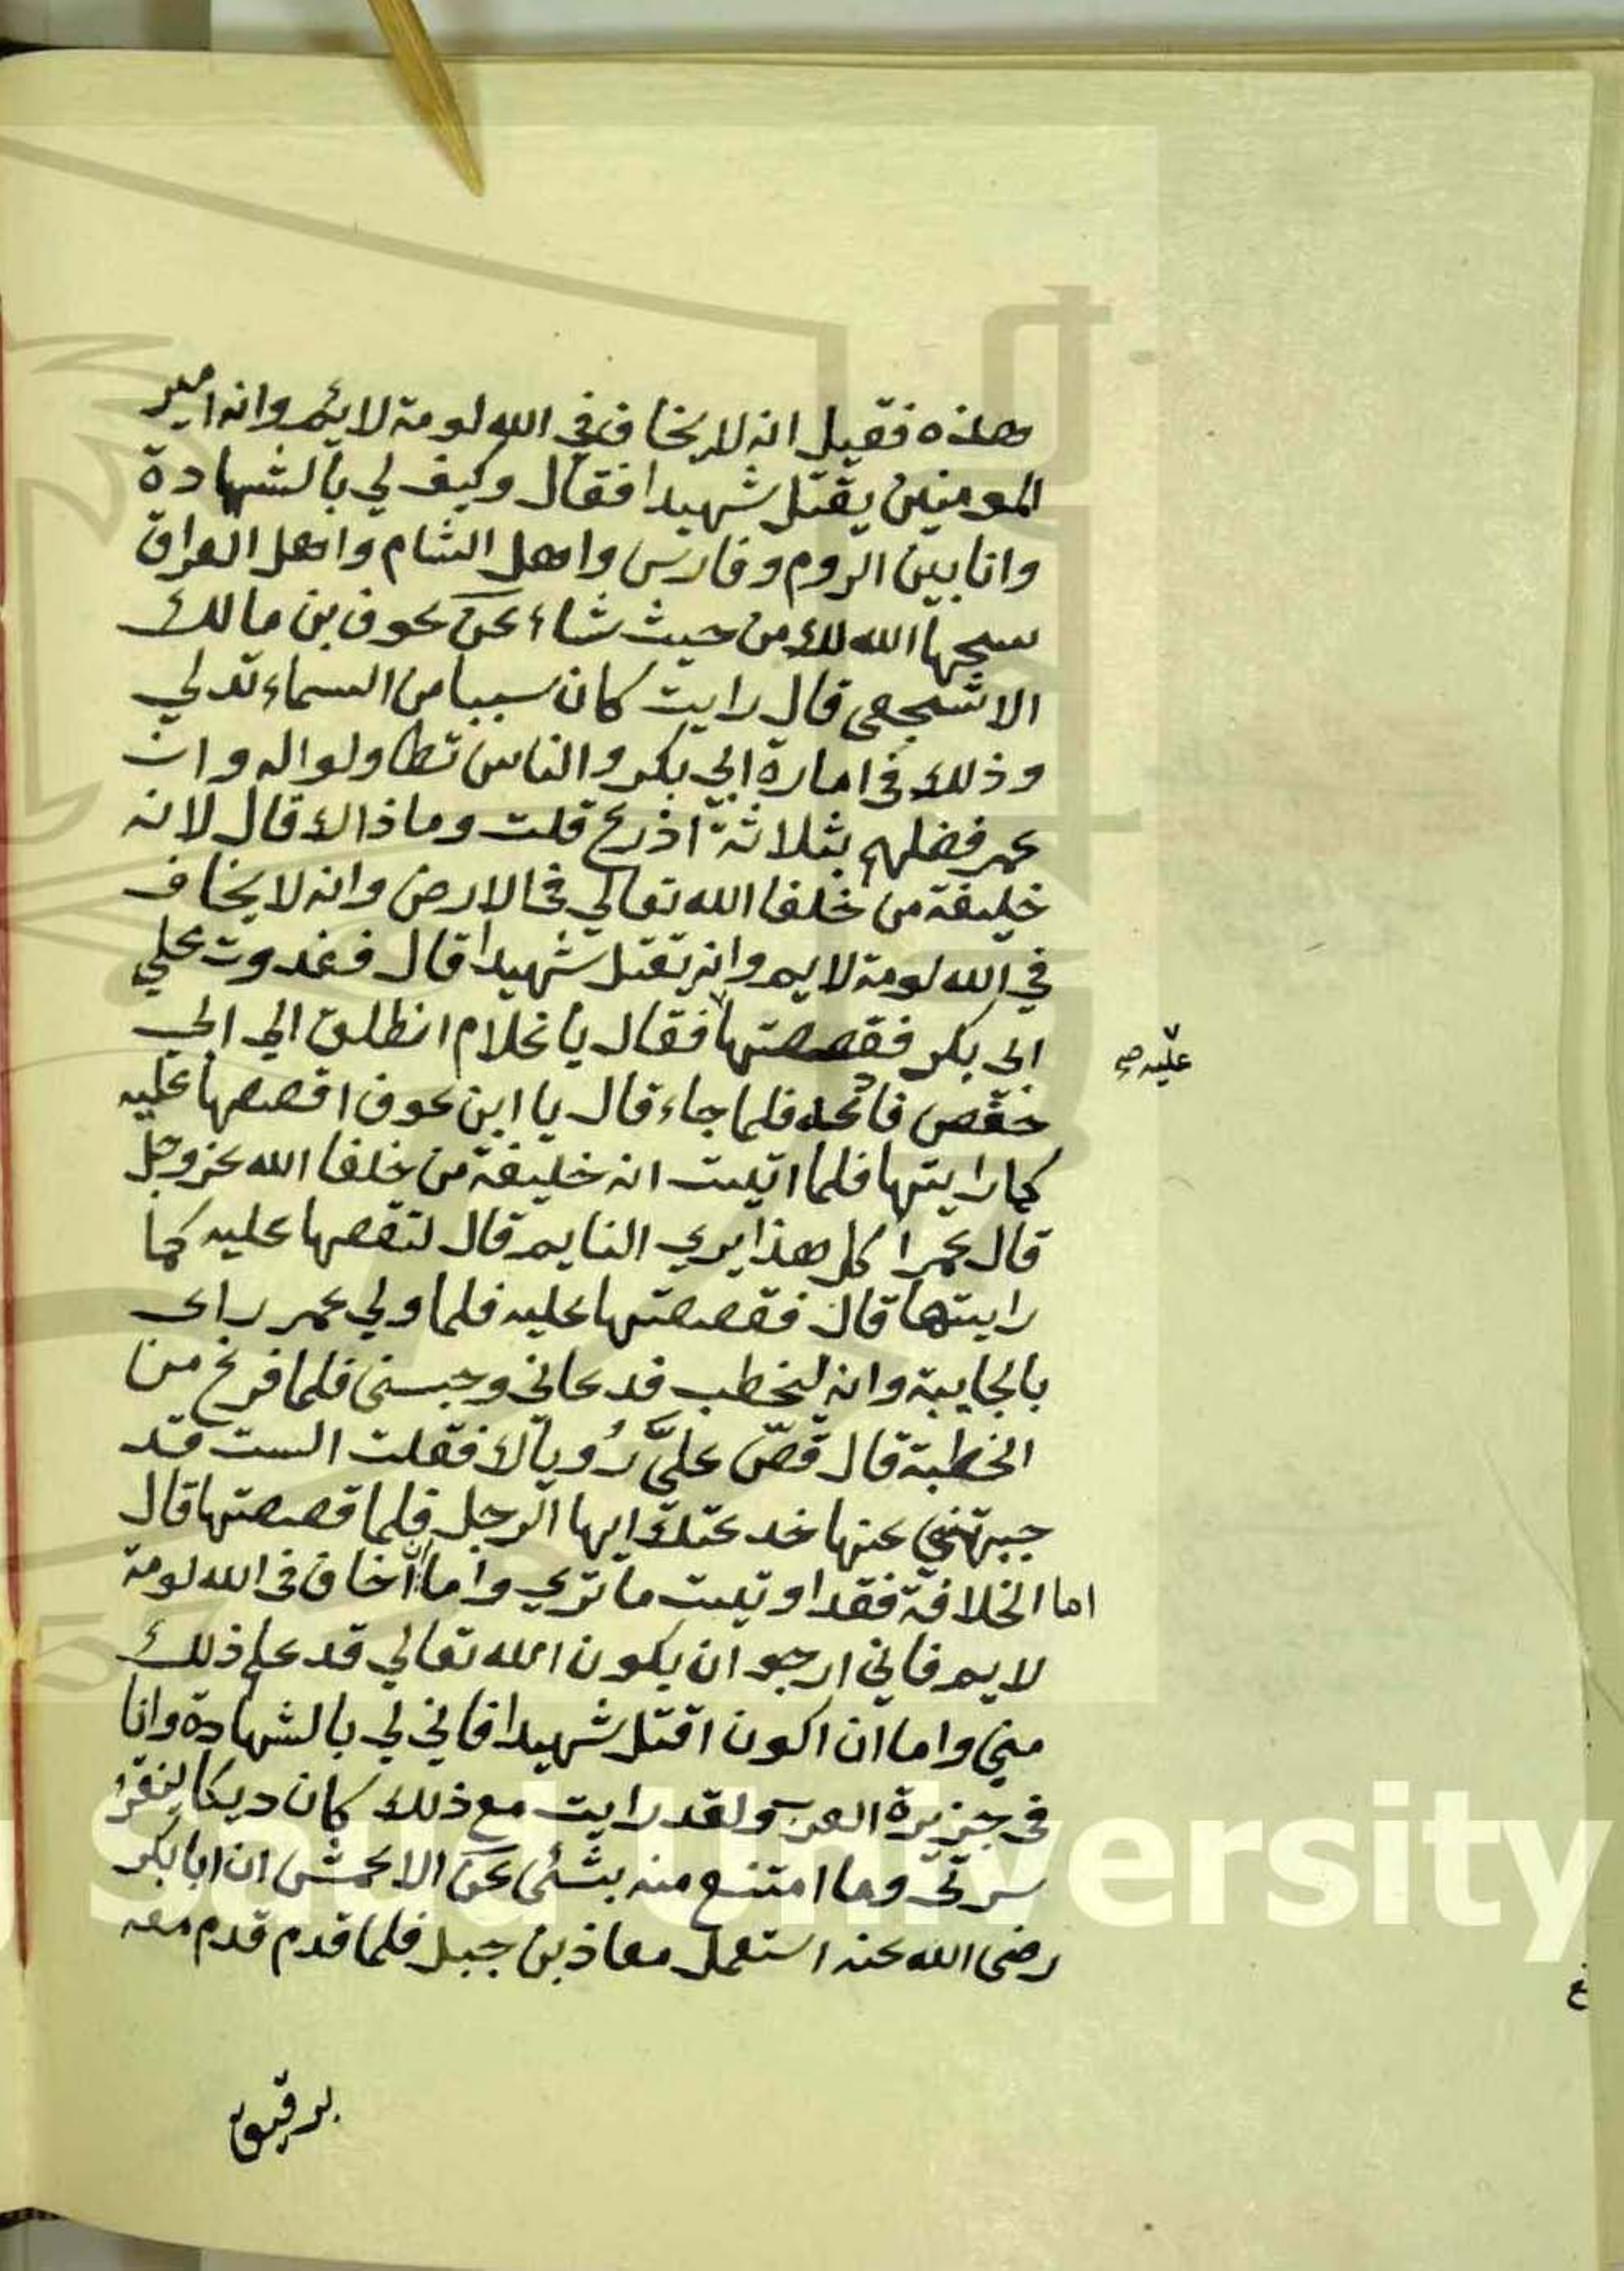 هذه فقيل انه لا يخاف في الله لومة لائم وانه امير
المومنين يقتل شهيدا فقال وكيف لي بالشهادة
وانا بين الروم وفارس واهل الشام واهل العراق
الله لك من حيث شاء عن عوف بن مالك
الاشجعى قال رايت كان سببا من السماء تدلي
وذلك في امارة ابي بكر والناس تطاولوا له وان
عمر فضلهم بثلاثة اذرع قلت وماذاك قال لانه
خليفة من خلفا الله تعالي في الارض وانه لا يخاف
في الله لومة لايم وانه يقتل شهيدا قال فغدوت علي
ابي بكر فقصصتها فقال يا غلام انطلق الي ابي
عليه صح
حفص فادعه فلما جاء قال يا ابن عوف اقصصها عليه
كما رايتها فلما اتيت انه خليفة من خلفا الله عز وجل
قال عمر اكل هذا يري النايم قال لتقصها عليه كما
رايتها قال فقصصتها عليه فلما ولي عمر راى
بالجابية وانه ليخطب فدعاني وحبسنى فلما فرغ من
الخطبة قال قصّ عليَّ رُوياك فقلت الست قد
جبهتني عنها خدعتك ايها الرجل فلما قصصتها قال
اما الخلافة فقد اوتيت ما تري واما اخاف في الله لومة
لايم فاني ارجو ان يكون الله تعالي قد علم ذلك
مني واما ان اكون اقتل شهيدا فاني لي بالشهادة وانا
في جزيرة العرب ولقد رايت مع ذلك كان ديكا ينقر
سرتى وما امتنع منه بشئى عن الاعمش ان ابا بكر
رضى الله عنه استعمل معاذ بن جبل فلما قدم قدم معه
برقيق
Saud University